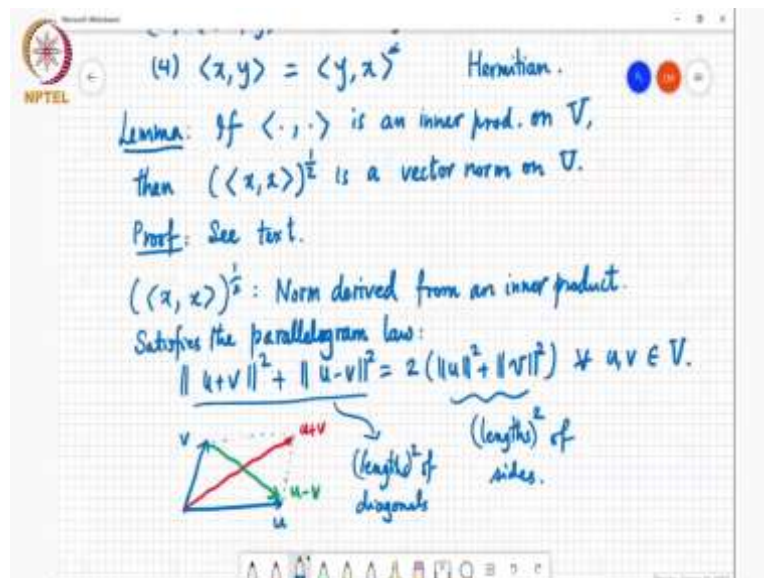 (4) ⟨x,y⟩ = ⟨y,x⟩* Hermitian.
NPTEL
Lemma: If ⟨·,·⟩ is an inner prod. on V,
then (⟨x,x⟩)^½ is a vector norm on V.
Proof: See text.
(⟨x,x⟩)^½ : Norm derived from an inner product.
Satisfies the parallelogram law:
‖u+v‖² + ‖u-v‖² = 2(‖u‖² + ‖v‖²) ∀ u,v ∈ V.
v
u+v
u-v
u
(length)² of
diagonals
(lengths)² of
sides.